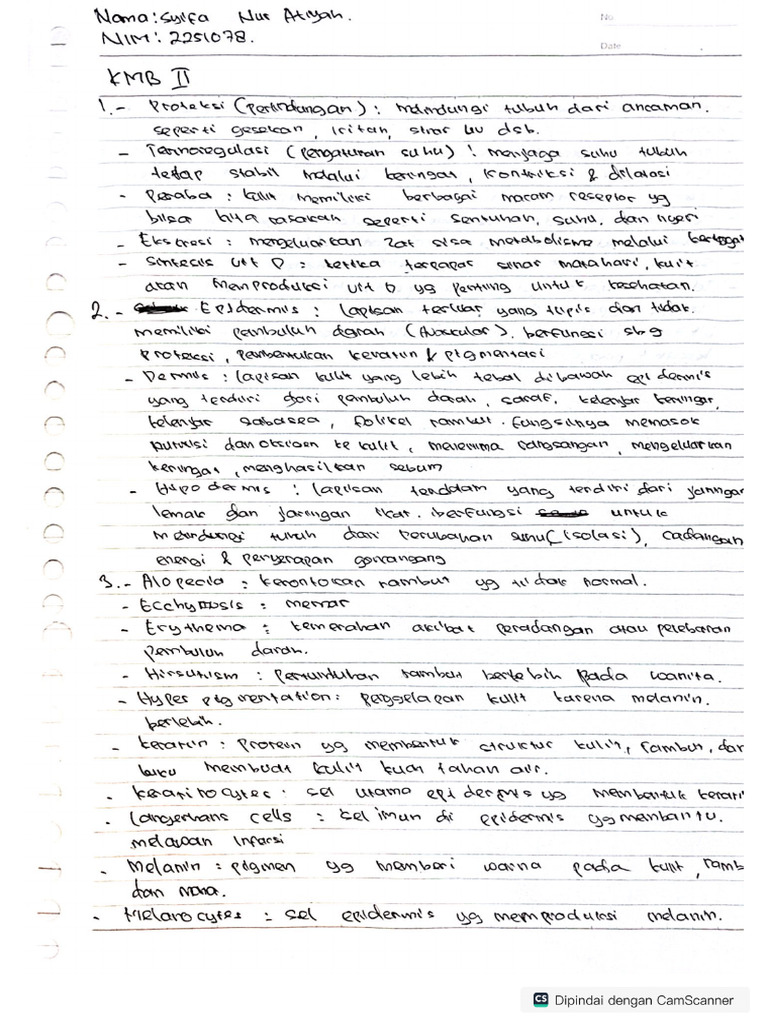 Nama: Syifa Nur Atiyah.
No
NIM: 2251078.
Date
KMB II
1. - Proteksi (Perlindungan) : melindungi tubuh dari ancaman.
seperti gesekan, iritan, sinar uv dsb.
- Termoregulasi (Pengaturan suhu) : menjaga suhu tubuh
tetap stabil melalui keringat, kontriksi & dilatasi
- Peraba : kulit memiliki berbagai macam reseptor yg
bisa kita rasakan seperti sentuhan, suhu, dan nyeri
- Ekskresi : mengeluarkan zat sisa metabolisme melalui keringat
- Sintesis vit D : ketika terpapar sinar matahari, kulit
akan memproduksi vit D yg penting untuk kesehatan.
2. - Epidermis : lapisan terluar yang tipis dan tidak
memiliki pembuluh darah (Avaskular). berfungsi sbg
Proteksi, pembentukan keratin & pigmentasi
- Dermis : lapisan kulit yang lebih tebal dibawah epidermis
yang terdiri dari pembuluh darah, saraf, kelenjar keringat,
kelenjar sabasea, folikel rambut. Fungsinya memasok
nutrisi dan oksigen ke kulit, menerima rangsangan, mengeluarkan
keringat, menghasilkan sebum
- Hipodermis : lapisan terdalam yang terdiri dari jaringan
lemak dan jaringan ikat. berfungsi untuk
melindungi tubuh dari perubahan suhu (isolasi), cadangan
energi & penyerapan goncangang
3. - Alopecia : kerontokan rambut yg tidak normal.
- Ecchymosis : memar
- Erythema : kemerahan akibat peradangan atau pelebaran
pembuluh darah.
- Hirsutism : Pertumbuhan rambut berlebih pada wanita.
- Hyper pigmentation : penggelapan kulit karena melanin.
berlebih.
- keratin : Protein yg membentuk struktur kulit, rambut, dan
kuku membuat kulit kuat tahan air.
- keratinocytes : sel utama epidermis yg membentuk kerati
- Langerhans cells : sel imun di epidermis yg membantu.
melawan infeksi
- Melanin : pigmen yg memberi warna pada kulit, ramb
dan mata.
- Melanocytes : sel epidermis yg memproduksi melanin.
CS Dipindai dengan CamScanner